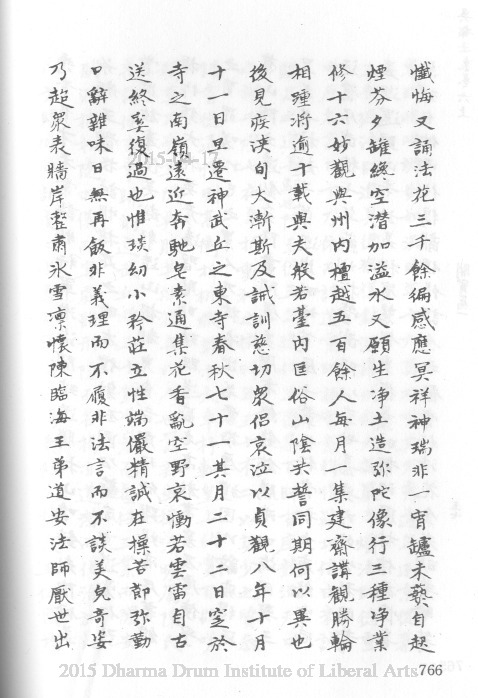 懺悔又誦法花三千餘徧感應冥祥神瑞非一宵鑪未爇自起
煙芬夕罐終空潛加溢水又願生净土造弥陀像行三種净業
修十六妙觀與州内檀越五百餘人每月一集建齋講觀勝輪
相踵將逾十載與夫般若臺内匡俗山陰共誓同期何以異也
後見疾浹旬大漸斯及誡訓慈切衆侶哀泣以貞觀八年十月
十一日旦遷神武丘之東寺春秋七十一其月二十二日窆於
寺之南嶺遠近奔馳皂素通集花香亂空野哀慟若雲雷自古
送終奚復過也惟琰幼小矜莊立性端儼精誠在操苦節弥勤
口辭雜味日無再飯非義理而不履非法言而不談美皃奇姿
乃超衆表牆岸整肅氷雪凛懷陳臨海王弟道安法師厭世出
2015-04-17
2015 Dharma Drum Institute of Liberal Arts
766